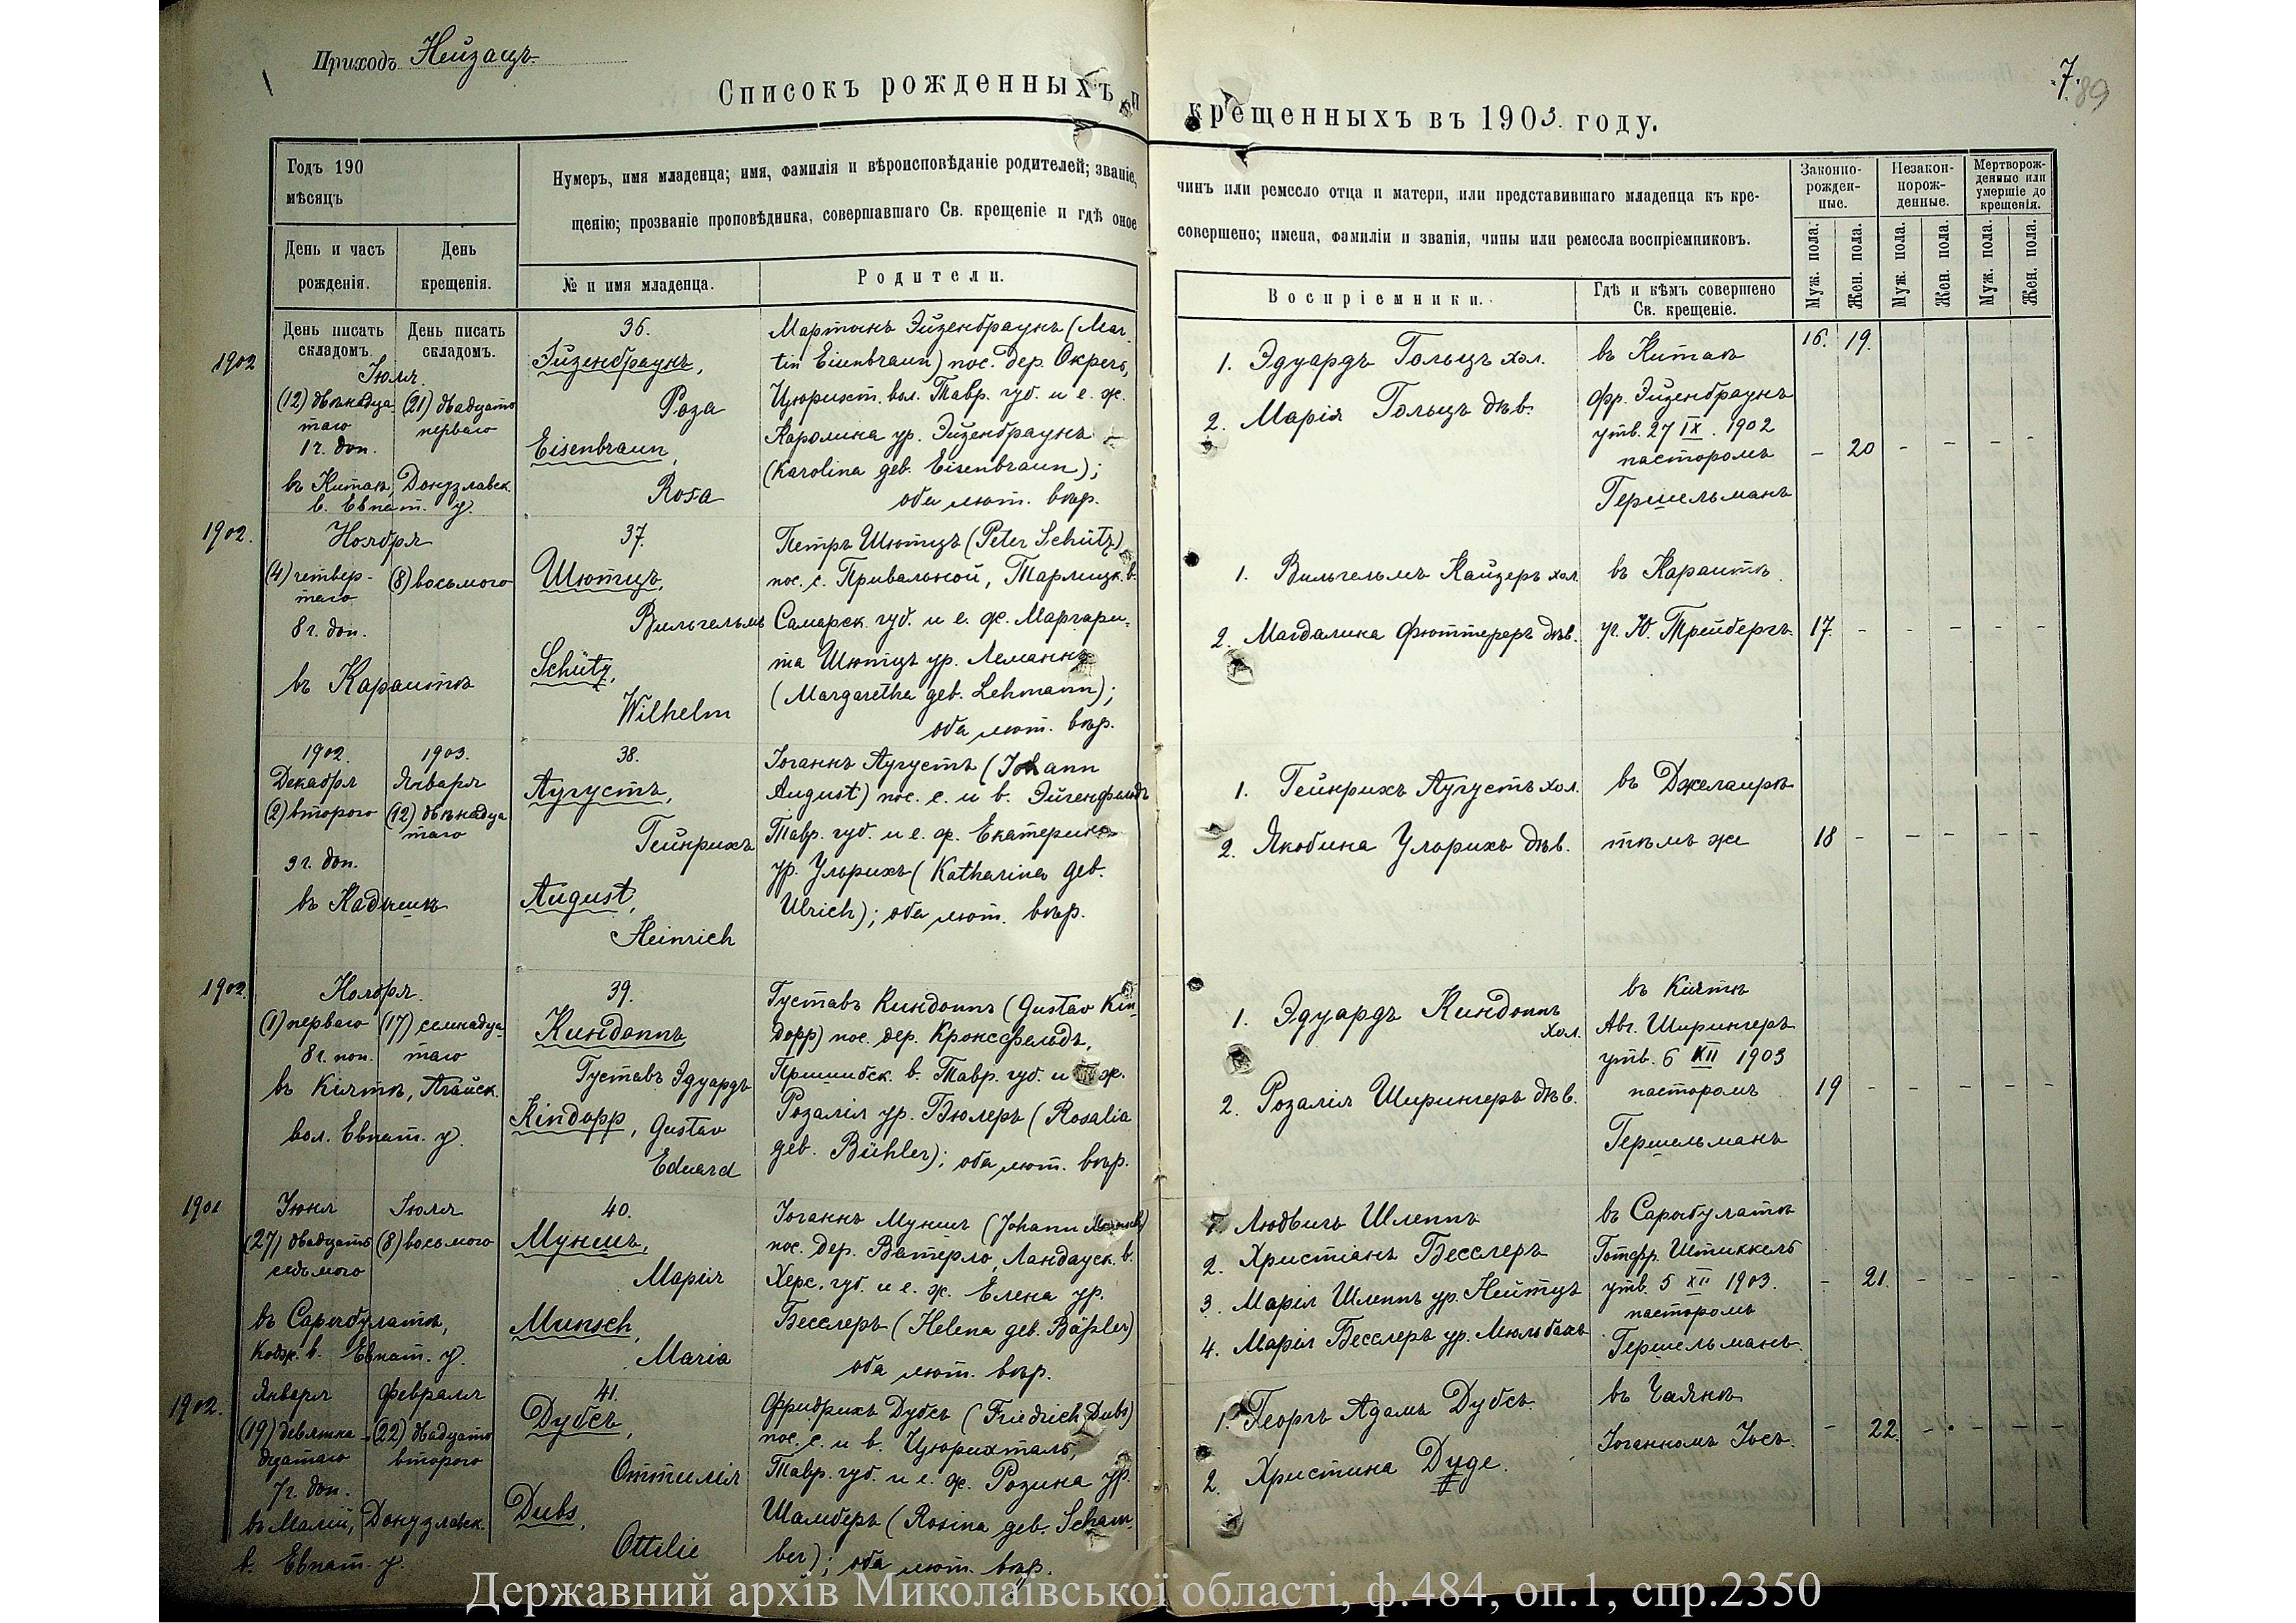 Приходъ Нейзацъ
7.
89
Списокъ рожденныхъ и крещенныхъ въ 1903. году.
Годъ 190
мѣсяцъ
Нумеръ, имя младенца; имя, фамилія и вѣроисповѣданіе родителей; званіе, чинъ или ремесло отца и матери, или представившаго младенца къ кре-
щенію; прозваніе проповѣдника, совершавшаго Св. крещеніе и гдѣ оное совершено; имена, фамиліи и званія, чины или ремесла воспріемниковъ.
Законно-
рожден-
ные.
Незакон-
норож-
денные.
Мертворож-
денные или
умершіе до
крещенія.
День и часъ
рожденія.
День
крещенія.
№ и имя младенца.
Родители.
Воспріемники.
Гдѣ и кѣмъ совершено
Св. крещеніе.
Муж. пола.
Жен. пола.
Муж. пола.
Жен. пола.
Муж. пола.
Жен. пола.
День писать
складомъ.
День писать
складомъ.
1902
Іюля.
(12) двѣнадца
таго
1 ч. доп.
(21) двадцать
перваго
въ Китаѣ, Донузлавск.
в. Евпат. у.
36.
Эйзенбраунъ,
Роза
Eisenbraun,
Rosa
Мартинъ Эйзенбраунъ (Mar-
tin Eisenbraun) пос. дер. Окречъ,
Цюрихт. вол. Тавр. губ. и е. ж.
Каролина ур. Эйзенбраунъ
(Karolina geb. Eisenbraun);
оба лют. вѣр.
1. Эдуардъ Гольцъ хол.
2. Марія Гольцъ дѣв.
въ Китаѣ
Фр. Эйзенбраунъ
утв. 27 IX. 1902
пасторомъ
Гершельманъ
16. 19.
- 20 - - - -
1902.
Ноября
(4) четвер-
таго
8 ч. доп.
(8) восьмого
въ Караитѣ
37.
Шютцъ,
Вильгельмъ
Schütz,
Wilhelm
Петръ Шютцъ (Peter Schütz)
пос. с. Привальной, Тарлицк. в.
Самарск. губ. и е. ж. Маргари-
та Шютцъ ур. Леманнъ
(Margaretha geb. Lehmann);
оба лют. вѣр.
1. Вильгельмъ Кайзеръ хол.
2. Магдалина Фюттереръ дѣв.
въ Караитѣ.
уч. Ю. Трейбергъ.
17. - - - - -
1902.
Декабря
(2) второго
9 ч. доп.
1903.
Января
(12) двѣнадца
таго
въ Кадышѣ
38.
Аугустъ,
Гейнрихъ
August,
Heinrich
Іоганнъ Аугустъ (Johann
August) пос. с. и в. Эйгенфельдъ
Тавр. губ. и е. ж. Екатерина
ур. Ульрихъ (Katharina geb.
Ulrich); оба лют. вѣр.
1. Гейнрихъ Аугустъ хол.
2. Якобина Ульрихъ дѣв.
въ Джелаирѣ
тѣмъ же
18 - - - - -
1902.
Ноября.
(1) перваго
8 ч. поп.
(17) семнадца-
таго
въ Кіятѣ, Агайск.
вол. Евпат. у.
39.
Киндоппъ
Густавъ Эдуардъ
Kindopp, Gustav
Eduard
Густавъ Киндоппъ (Gustav Kin-
dopp) пос. дер. Кронсфельдъ,
Пришибск. в. Тавр. губ. и е. ж.
Розалія ур. Бюлеръ (Rosalia
geb. Bühler); оба лют. вѣр.
1. Эдуардъ Киндоппъ
хол.
2. Розалія Ширингеръ дѣв.
въ Кіятѣ
Авг. Ширингеръ
утв. 6 XII 1903
пасторомъ
Гершельманъ
19 - - - - -
1901
Іюня
(27) двадцать
седьмого
Іюля
(8) восьмого
въ Сарыбулатѣ,
Кодж. в. Евпат. у.
40.
Муншъ,
Марія
Munsch,
Maria
Іоганнъ Муншъ (Johann Munsch)
пос. дер. Ватерло, Ландауск. в.
Херс. губ. и е. ж. Елена ур.
Бесслеръ (Helena geb. Bäßler)
оба лют. вѣр.
1. Людвигъ Шлеппъ
2. Христіанъ Бесслеръ
3. Марія Шлеппъ ур. Нейтцъ
4. Марія Бесслеръ ур. Мюльбахъ
въ Сарыбулатѣ
Готфр. Штиккель
утв. 5 XII 1903.
пасторомъ
Гершельманъ.
- 21. - - - -
1902.
Января
(19) девятна-
дцатаго
7 ч. доп.
Февраля
(22) двадцать
второго
въ Малый, Донузлавск.
в. Евпат. у.
41.
Дубсъ,
Оттилія
Dubs,
Ottilie
Фридрихъ Дубсъ (Friedrich Dubs)
пос. с. и в. Цюрихталь,
Тавр. губ. и е. ж. Розина ур.
Шамберъ (Rosina geb. Scham-
ber); оба лют. вѣр.
1. Георгъ Адамъ Дубсъ.
2. Христина Дуде.
въ Чаянѣ
Іоганномъ Іосъ.
- 22. - - - -
Державний архів Миколаївської області, ф.484, оп.1, спр.2350